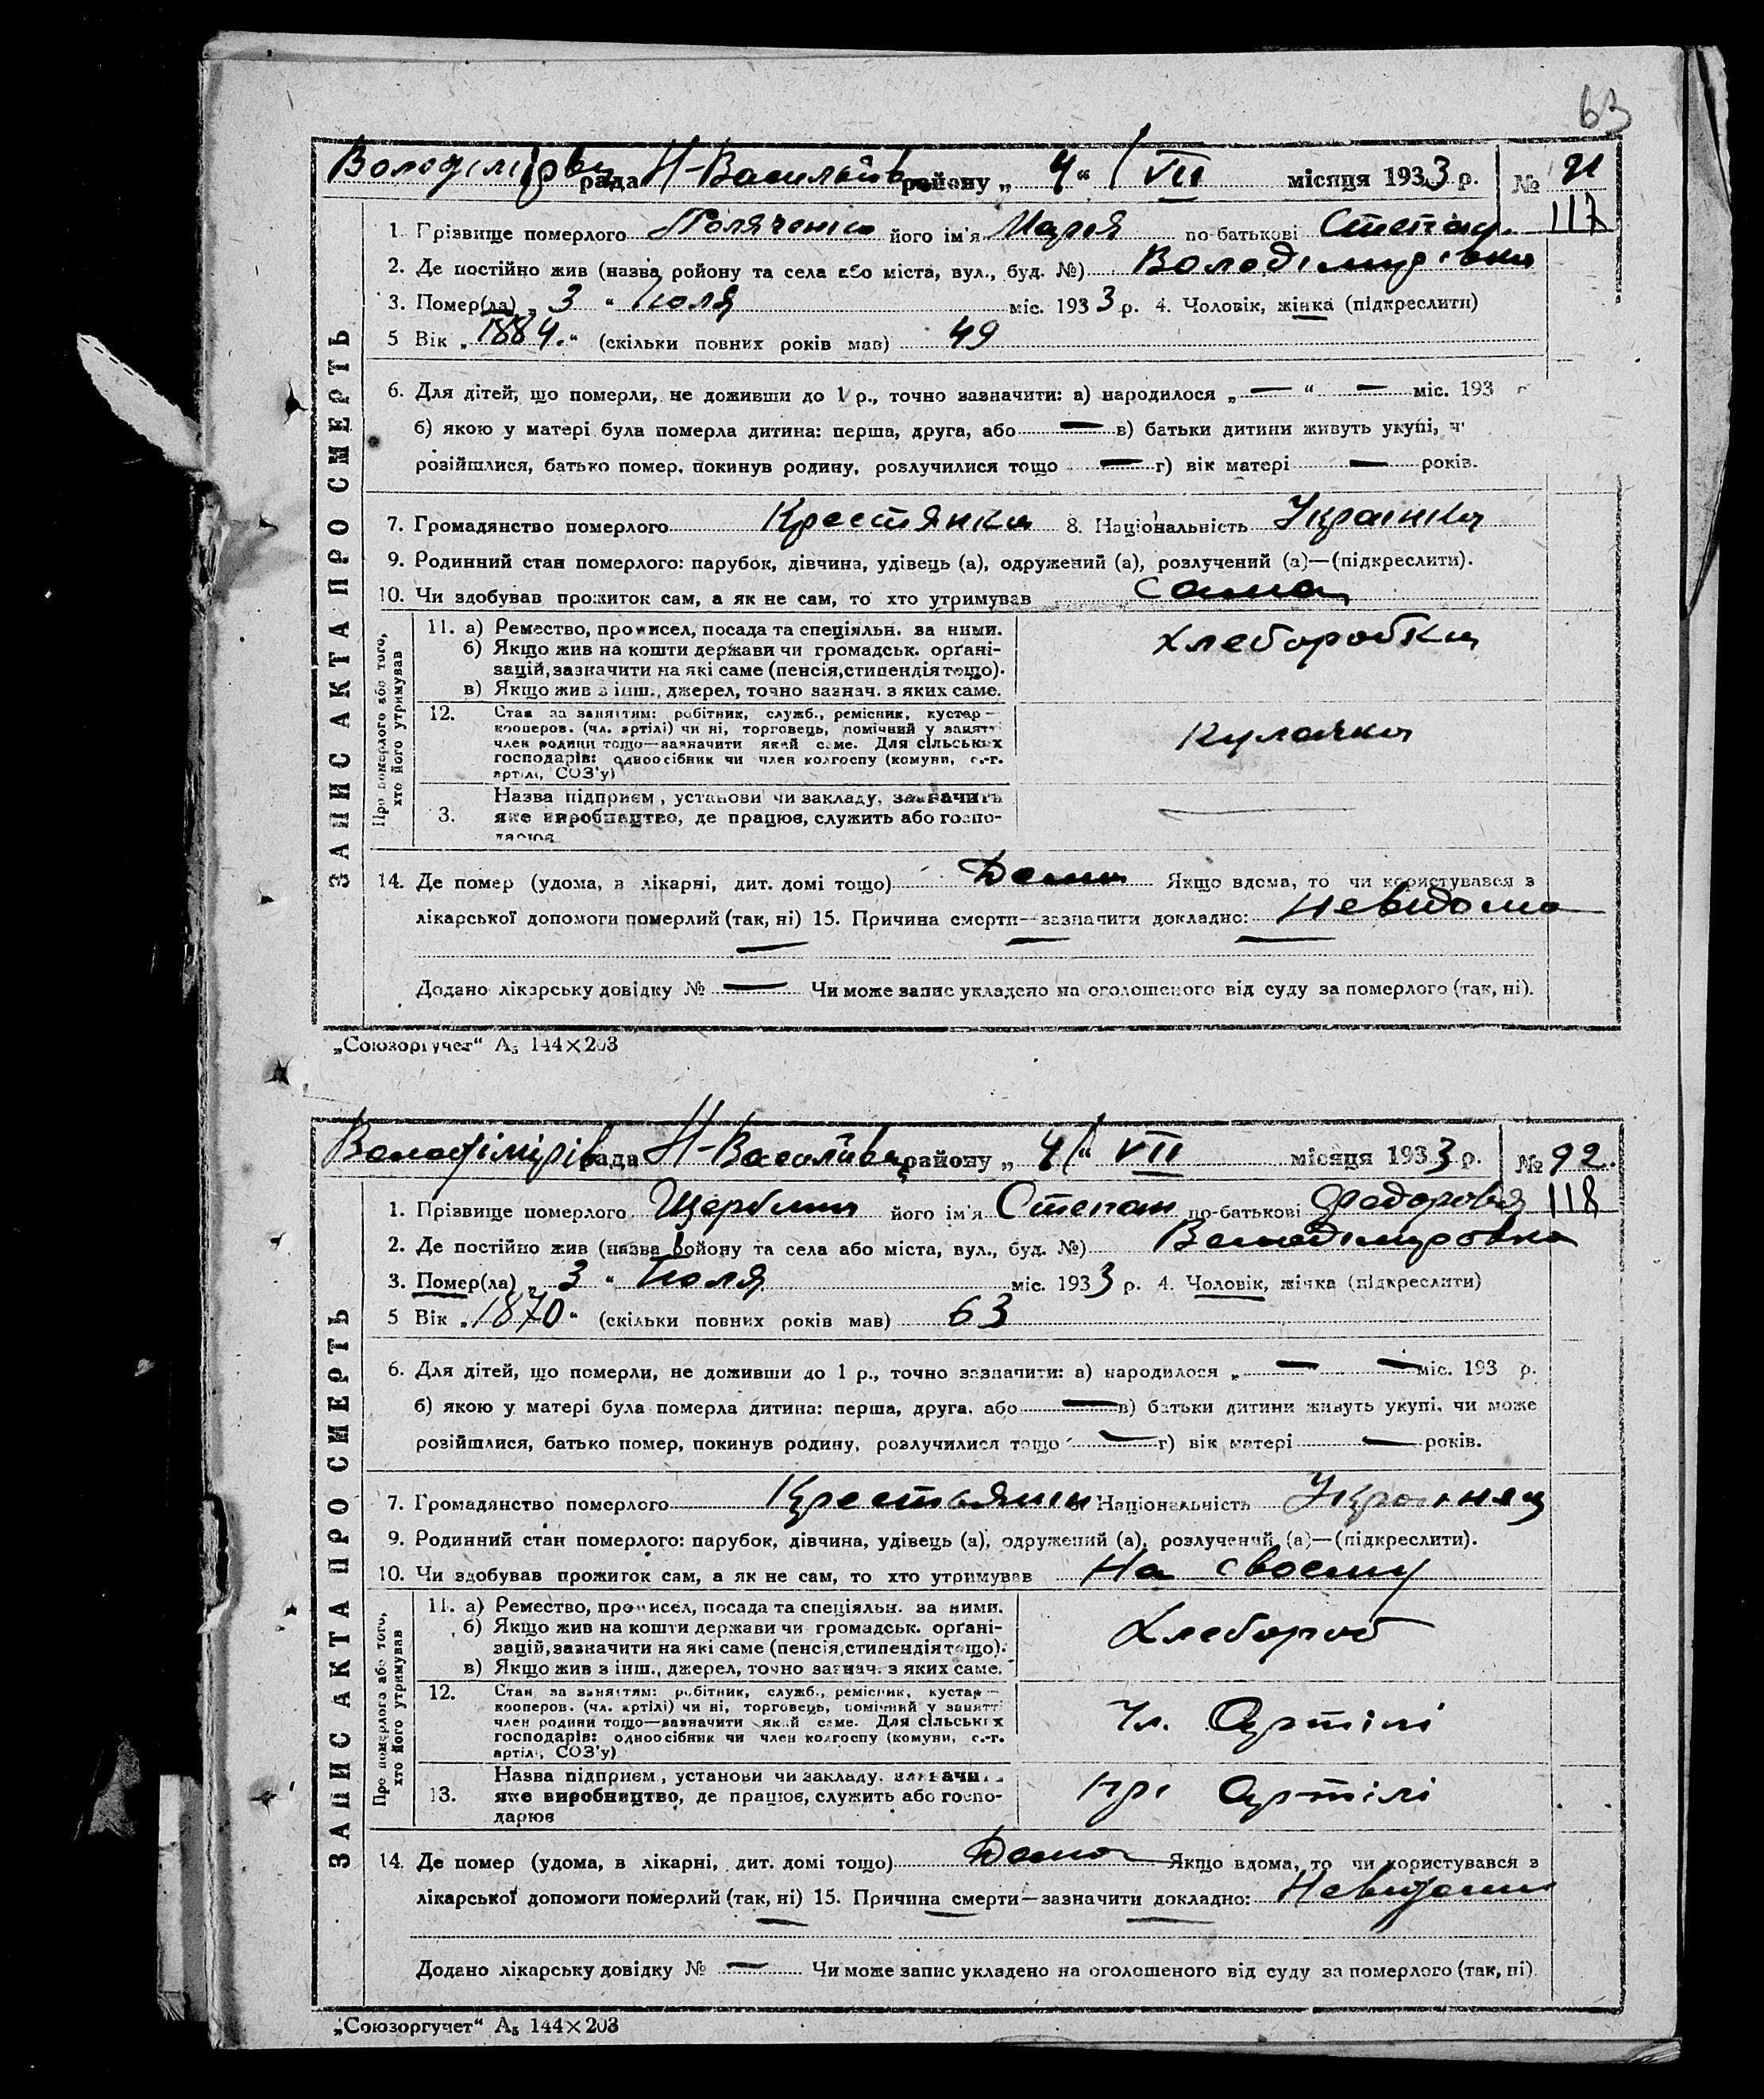 63
Володімірівс рада Н-Василівс району „ 4 “ VII місяця 1933 р. № 91
1. Прізвище померлого його ім'я Марія по батькові Степан. 117
2. Де постійно жив (назва ройону та села або міста, вул., буд. №) Володімирівка
3. Помер(ла) „ 3 “ Июля міс. 1933 р. 4. Чоловік, жінка (підкреслити)
5 Вік „ 1884. “ (скільки повних років мав) 49
6. Для дітей, що померли, не доживши до 1 р., точно зазначити: а) народилося „ — “ — міс. 193
б) якою у матері була померла дитина: перша, друга, або — в) батьки дитини живуть укупі, ч
розійшлися, батько помер, покинув родину, розлучилися тощо — г) вік матері — років.
7. Громадянство померлого Крестянка 8. Національність Українка
9. Родинний стан померлого: парубок, дівчина, удівець (а), одружений (а), розлучений (а)—(підкреслити).
10. Чи здобував прожиток сам, а як не сам, то хто утримував сама
ЗАПИС АКТА ПРО СМЕРТЬ
Про померлого або того, хто його утримував
11. а) Ремество, промисел, посада та спеціяльн. за ними. хлеборобка
б) Якщо жив на кошти держави чи громадськ. орґані-
зацій, зазначити на які саме (пенсія, стипендія тощо).
в) Якщо жив з інш., джерел, точно зазнач. з яких саме.
12. Стан за заняттям: робітник, служб., ремісник, кустар— Кулачка
кооперов. (чл. артілі) чи ні, торговець, помічний у занятт
член родини тощо—зазначити який саме. Для сільських
господарів: одноосібник чи член колгоспу (комуни, с.-г.
артілі, СОЗ'у)
Назва підприєм, установи чи закладу, зазначить —
3. яке виробництво, де працює, служить або госпо-
дарює
14. Де помер (удома, в лікарні, дит. домі тощо) Дома Якщо вдома, то чи користувався з
лікарської допомоги померлий (так, ні) 15. Причина смерти—зазначити докладно: Невидома
— — —
Додано лікарську довідку № — Чи може запис укладено на оголошеного від суду за померлого (так, ні).
„Союзоргучет“ А5 144×203
Володімірів рада Н-Василівс району „ 4 “ VII місяця 1933 р. № 92.
1. Прізвище померлого Щербина його ім'я Степан по-батькові Федоровія 118
2. Де постійно жив (назва ройону та села або міста, вул., буд. №) Володімировка
3. Помер(ла) „ 3 “ Июля міс. 1933 р. 4. Чоловік, жінка (підкреслити)
5 Вік „ 1870 “ (скільки повних років мав) 63
6. Для дітей, що померли, не доживши до 1 р., точно зазначити: а) народилося „ — — міс. 193 р.
б) якою у матері була померла дитина: перша, друга, або — в) батьки дитини живуть укупі, чи може
розійшлися, батько помер, покинув родину, розлучилися тощо — г) вік матері — років.
7. Громадянство померлого Крестьянин Національність Украіняц
9. Родинний стан померлого: парубок, дівчина, удівець (а), одружений (а), розлучений (а)—(підкреслити).
10. Чи здобував прожиток сам, а як не сам, то хто утримував На своєму
ЗАПИС АКТА ПРО СМЕРТЬ
Про померлого або того, хто його утримував
11. а) Ремество, промисел, посада та спеціяльн. за ними. Хлебороб
б) Якщо жив на кошти держави чи громадськ. орґані-
зацій, зазначити на які саме (пенсія, стипендія тощо).
в) Якщо жив з інш., джерел, точно зазнач. з яких саме.
12. Стан за заняттям: робітник, служб., ремісник, кустар— Чл. Артілі
кооперов. (чл. артілі) чи ні, торговець, помічний у занятті
член родини тощо—зазначити який саме. Для сільських
господарів: одноосібник чи член колгоспу (комуни, с.-г.
артілі, СОЗ'у)
Назва підприєм, установи чи закладу, зазначи прі Артілі
13. яке виробництво, де працює, служить або госпо-
дарює
14. Де помер (удома, в лікарні, дит. домі тощо) Дома Якщо вдома, то чи користувався з
лікарської допомоги померлий (так, ні) 15. Причина смерти—зазначити докладно: Невидома
— — —
Додано лікарську довідку № — Чи може запис укладено на оголошеного від суду за померлого (так, ні).
„Союзоргучет“ А5 144×203